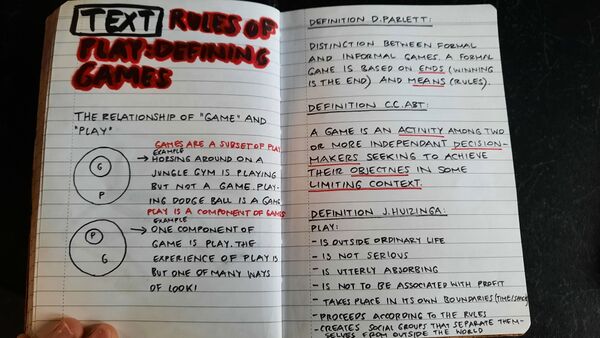 TEXT RULES OF
PLAY: DEFINING
GAMES
THE RELATIONSHIP OF "GAME" AND
"PLAY"
GAMES ARE A SUBSET OF PLAY
EXAMPLE
G
P
→ HORSING AROUND ON A
JUNGLE GYM IS PLAYING
BUT NOT A GAME. PLAY-
ING DODGE BALL IS A GAME
PLAY IS A COMPONENT OF GAMES
EXAMPLE
P
G
→ ONE COMPONENT OF
GAME IS PLAY. THE
EXPERIENCE OF PLAY IS
BUT ONE OF MANY WAYS
OF LOOKI
DEFINITION D. PARLETT:
DISTINCTION BETWEEN FORMAL
AND INFORMAL GAMES. A FORMAL
GAME IS BASED ON ENDS (WINNING
IS THE END) AND MEANS (RULES).
DEFINITION C.C. ABT:
A GAME IS AN ACTIVITY AMONG TWO
OR MORE INDEPENDANT DECISION-
MAKERS SEEKING TO ACHIEVE
THEIR OBJECTNES IN SOME
LIMITING CONTEXT.
DEFINITION J. HUIZINGA:
PLAY:
- IS OUTSIDE ORDINARY LIFE
- IS NOT SERIOUS
- IS UTTERLY ABSORBING
- IS NOT TO BE ASSOCIATED WITH PROFIT
- TAKES PLACE IN ITS OWN BOUNDARIES (TIME/SPACE)
- PROCEEDS ACCORDING TO THE RULES
- CREATES SOCIAL GROUPS THAT SEPARATE THEM-
SELVES FROM OUTSIDE THE WORLD